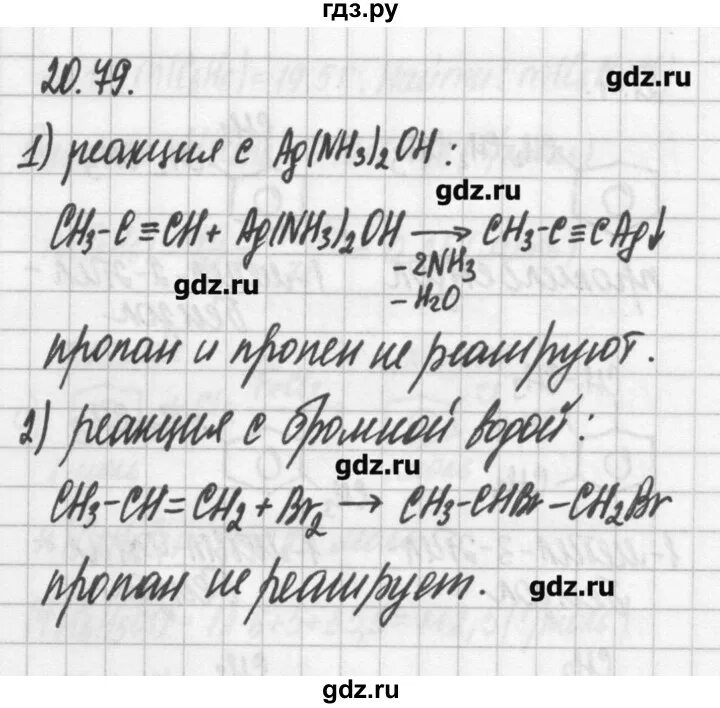 гдз.ру
20.79.
gdz.ru
1) реакция с Ag(NH₃)₂OH:
gdz.ru
CH₃-C≡CH + Ag(NH₃)₂OH → CH₃-C≡CAg↓
-2NH₃
gdz.ru
-H₂O
пропан и пропен не реагируют.
2) реакция с бромной водой:
gdz.ru
CH₃-CH=CH₂ + Br₂ → CH₃-CHBr-CH₂Br
пропан не реагирует.
gdz.ru
gdz.ru